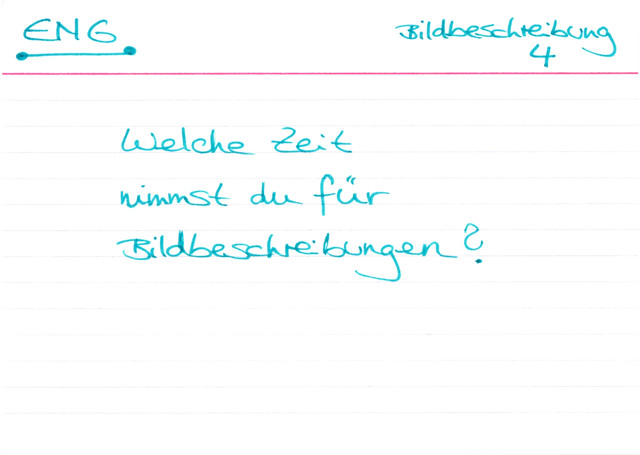 ENG
Bildbeschreibung
4
Welche Zeit
nimmst du für
Bildbeschreibungen?